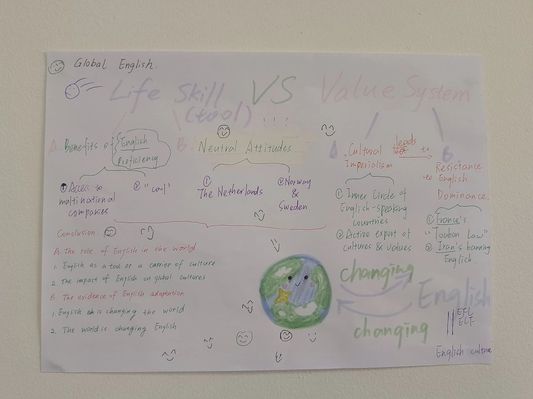 Global English.
Life Skill VS Value System
(tool)
A. Benefits of English
Proficiency
① Access to
multinational
companies
② "cool"
B.
Neutral Attitudes
①
The Netherlands
② Norway
&
Sweden
A. Cultural
Imperialism
leads
to
B.
Resistance
to English
Dominance.
① Inner Circle of
English-speaking
countries
② Active export of
cultures & values
① France's
"Toubon Law"
② Iran's banning
English
Conclusion
A. the role of English in the world
1. English as a tool or a carrier of culture
2. The impact of English on global cultures
B. The evidence of English adaptation
1. English is changing the world
2. The world is changing English
changing
English
changing
EFL
ELF
English culture